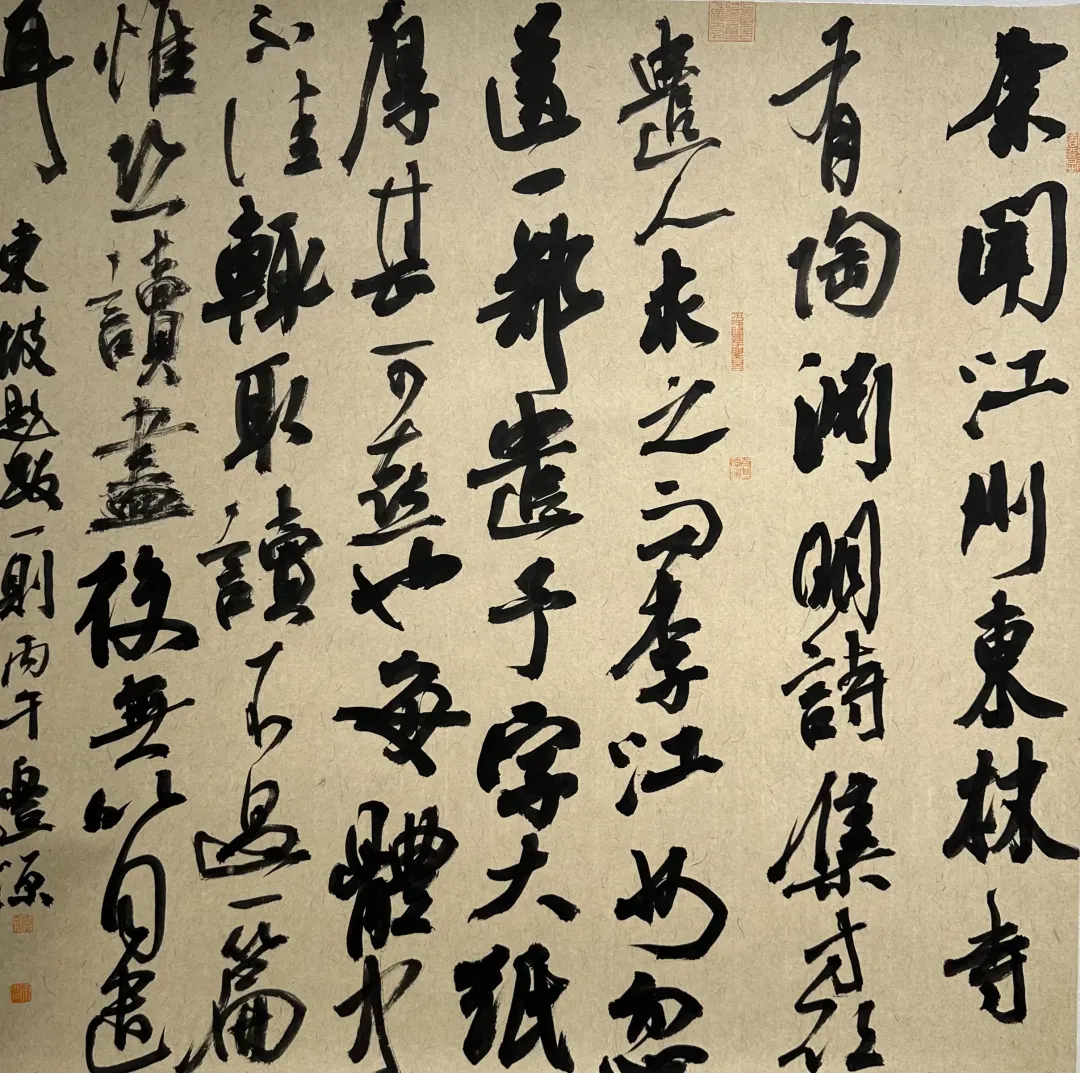 余聞江州東林寺
有陶淵明詩集方欲
遣人求之而李江州忽
送一部遺予字大紙
厚甚可喜也每體中
不佳輒取讀不過一篇
惟恐讀盡後無以自遣
耳 東坡題跋一則丙午豐源